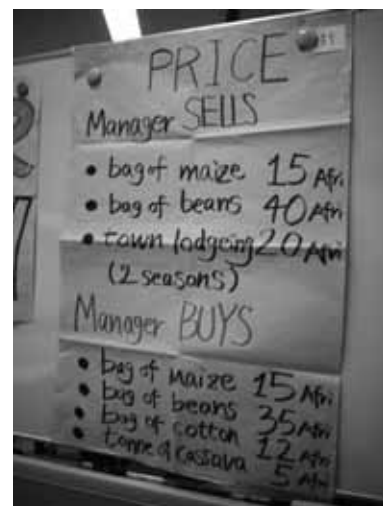 PRICE
Manager SELLS
• bag of maize 15 Afri
• bag of beans 40 Afri
• town lodgeing 20 Afri
(2 seasons)
Manager BUYS
• bag of Maize 15 Afri
• bag of beans 35 Afri
• bag of cotton 12 Afri
• tonne of Cassava 5 Afri